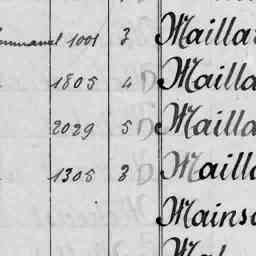 1001 3 Mailla
1805 4 D Mailla
2029 5 D Mailla
1305 8 D Mailla
Mains